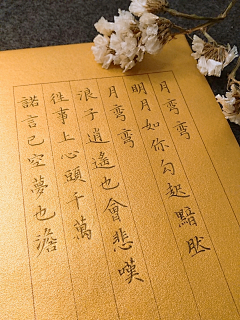 月彎彎
明月如你勾起黯然
月彎彎
浪子逍遙也會悲嘆
往事上心頭千萬
諾言已空夢也澹